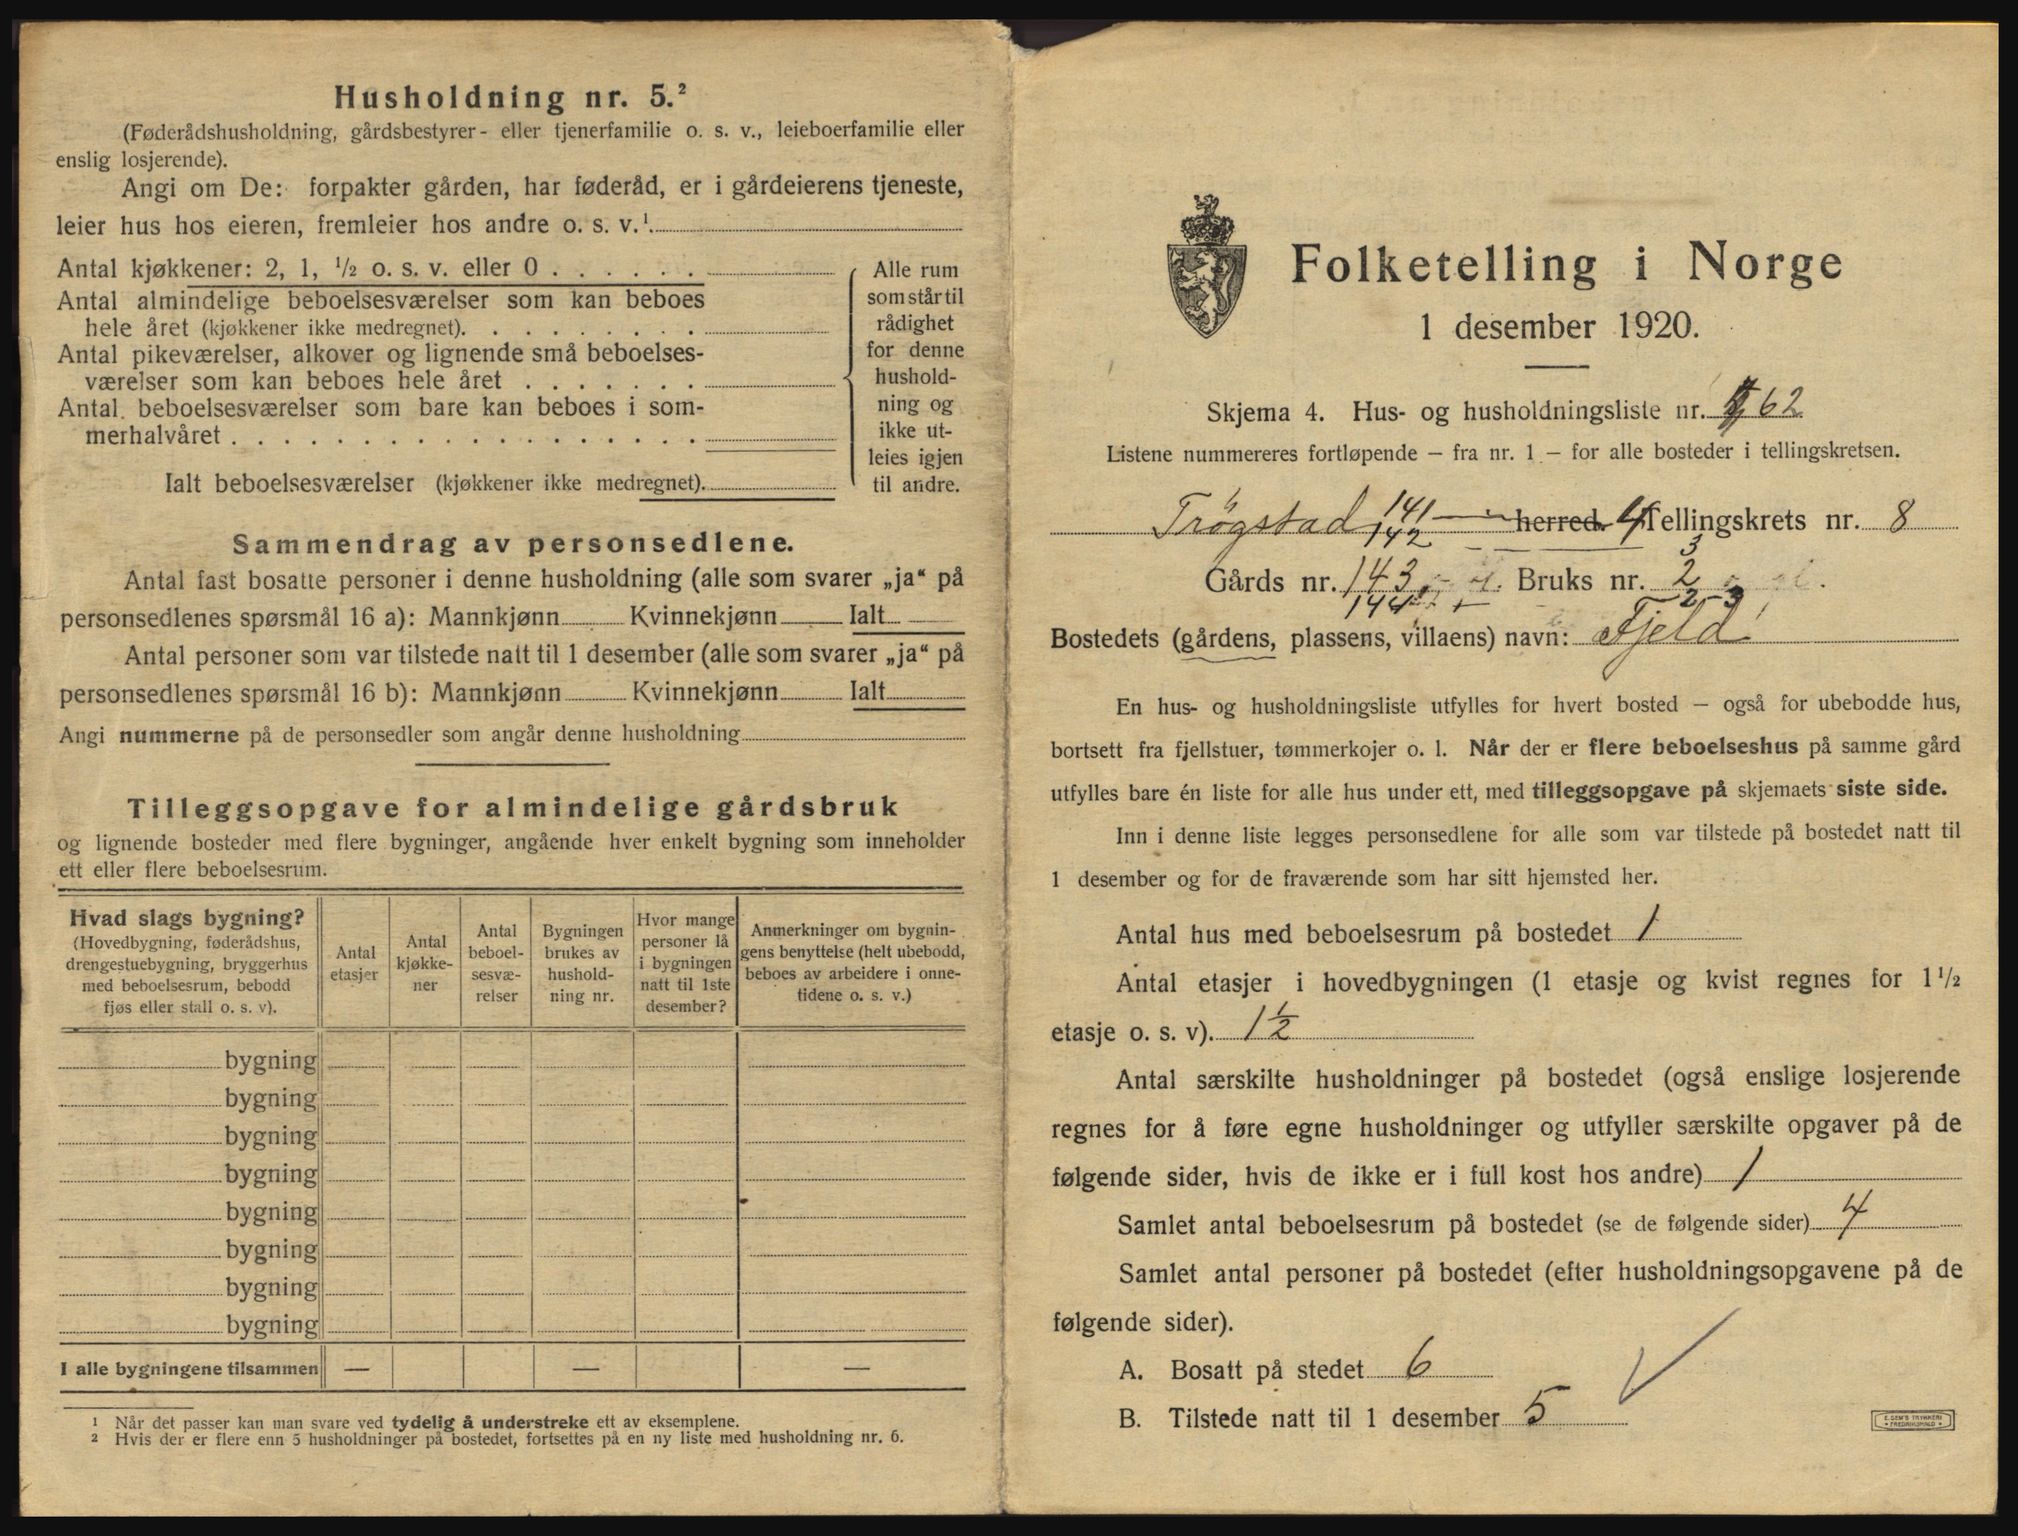 Husholdning nr. 5.²
(Føderådshusholdning, gårdsbestyrer- eller tjenerfamilie o. s. v., leieboerfamilie eller
enslig losjerende).
Angi om De: forpakter gården, har føderåd, er i gårdeierens tjeneste,
leier hus hos eieren, fremleier hos andre o. s. v.¹
Antal kjøkkener: 2, 1, ½ o. s. v. eller 0 . . . . . .
Antal almindelige beboelsesværelser som kan beboes
hele året (kjøkkener ikke medregnet). . . . . . . . .
Antal pikeværelser, alkover og lignende små beboelses-
værelser som kan beboes hele året . . . . . . .
Antal beboelsesværelser som bare kan beboes i som-
merhalvåret . . . . . . . . . . . . . . . . . .
Ialt beboelsesværelser (kjøkkener ikke medregnet).
Alle rum
som står til
rådighet
for denne
hushold-
ning og
ikke ut-
leies igjen
til andre.
Sammendrag av personsedlene.
Antal fast bosatte personer i denne husholdning (alle som svarer „ja“ på
personsedlenes spørsmål 16 a): Mannkjønn Kvinnekjønn Ialt
Antal personer som var tilstede natt til 1 desember (alle som svarer „ja“ på
personsedlenes spørsmål 16 b): Mannkjønn Kvinnekjønn Ialt
Angi nummerne på de personsedler som angår denne husholdning
Tilleggsopgave for almindelige gårdsbruk
og lignende bosteder med flere bygninger, angående hver enkelt bygning som inneholder
ett eller flere beboelsesrum.
Hvad slags bygning?
(Hovedbygning, føderådshus,
drengestuebygning, bryggerhus
med beboelsesrum, bebodd
fjøs eller stall o. s. v).
Antal
etasjer
Antal
kjøkke-
ner
Antal
beboel-
sesvæ-
relser
Bygningen
brukes av
hushold-
ning nr.
Hvor mange
personer lå
i bygningen
natt til 1ste
desember?
Anmerkninger om bygnin-
gens benyttelse (helt ubebodd,
beboes av arbeidere i onne-
tidene o. s. v.)
bygning
bygning
bygning
bygning
bygning
bygning
bygning
bygning
I alle bygningene tilsammen — — —
¹ Når det passer kan man svare ved tydelig å understreke ett av eksemplene.
² Hvis der er flere enn 5 husholdninger på bostedet, fortsettes på en ny liste med husholdning nr. 6.
Folketelling i Norge
1 desember 1920.
Skjema 4. Hus- og husholdningsliste nr. 62
Listene nummereres fortløpende — fra nr. 1 — for alle bosteder i tellingskretsen.
Trøgstad 141 herred. Tellingskrets nr. 8
142 3
Gårds nr. 143 Bruks nr. 2
144 2-3
Bostedets (gårdens, plassens, villaens) navn: Fjeld
En hus- og husholdningsliste utfylles for hvert bosted — også for ubebodde hus,
bortsett fra fjellstuer, tømmerkojer o. l. Når der er flere beboelseshus på samme gård
utfylles bare én liste for alle hus under ett, med tilleggsopgave på skjemaets siste side.
Inn i denne liste legges personsedlene for alle som var tilstede på bostedet natt til
1 desember og for de fraværende som har sitt hjemsted her.
Antal hus med beboelsesrum på bostedet 1
Antal etasjer i hovedbygningen (1 etasje og kvist regnes for 1½
etasje o. s. v). 1½
Antal særskilte husholdninger på bostedet (også enslige losjerende
regnes for å føre egne husholdninger og utfyller særskilte opgaver på de
følgende sider, hvis de ikke er i full kost hos andre) 1
Samlet antal beboelsesrum på bostedet (se de følgende sider) 4
Samlet antal personer på bostedet (efter husholdningsopgavene på de
følgende sider).
A. Bosatt på stedet 6
B. Tilstede natt til 1 desember 5
E. SEM'S TRYKKERI
FREDRIKSHALD